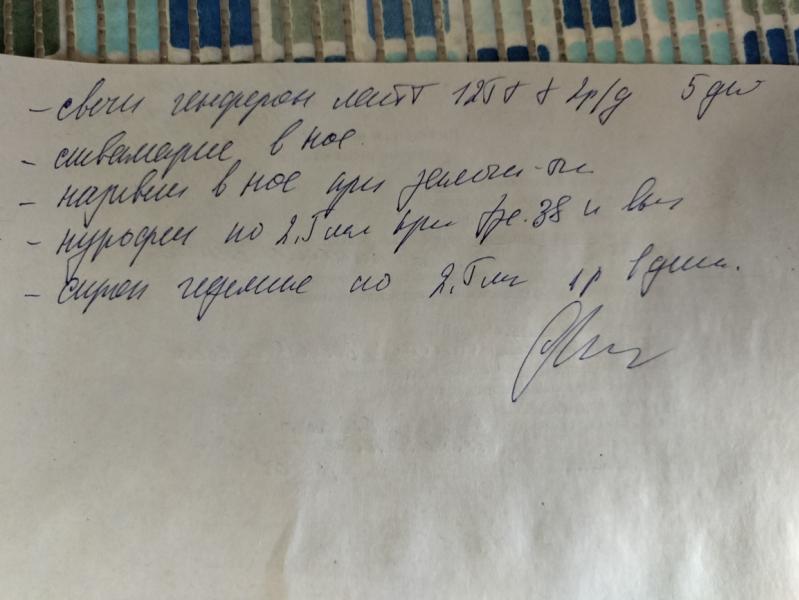 - свечи генферон лайт 125т х 2р/д 5 дн
- аквамарис в нос
- називин в нос при заложен-ти
- нурофен по 2.5 мл при t 38 и выш
- сироп геделикс по 2.5 мл 1р в день.